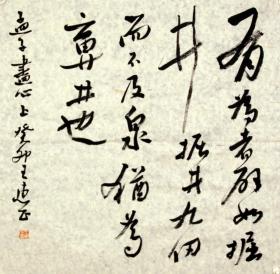 有为者辟如掘
井掘井九仞
而不及泉犹為
棄井也
孟子盡心上癸卯王